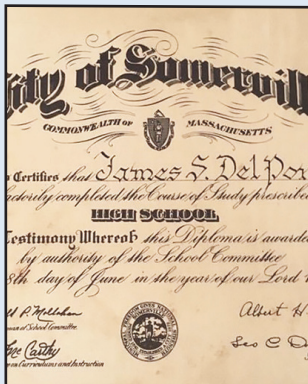 City of Somervill
COMMONWEALTH OF MASSACHUSETTS
Certifies that James S. DelPo
ctorily completed the Course of Study prescribe
HIGH SCHOOL
Testimony Whereof this Diploma is awarde
by authority of the School Committee
8th day of June in the year of our Lord
Albert H
man of School Committee
Mc Carthy
Leo C. D
on Curriculums and Instruction